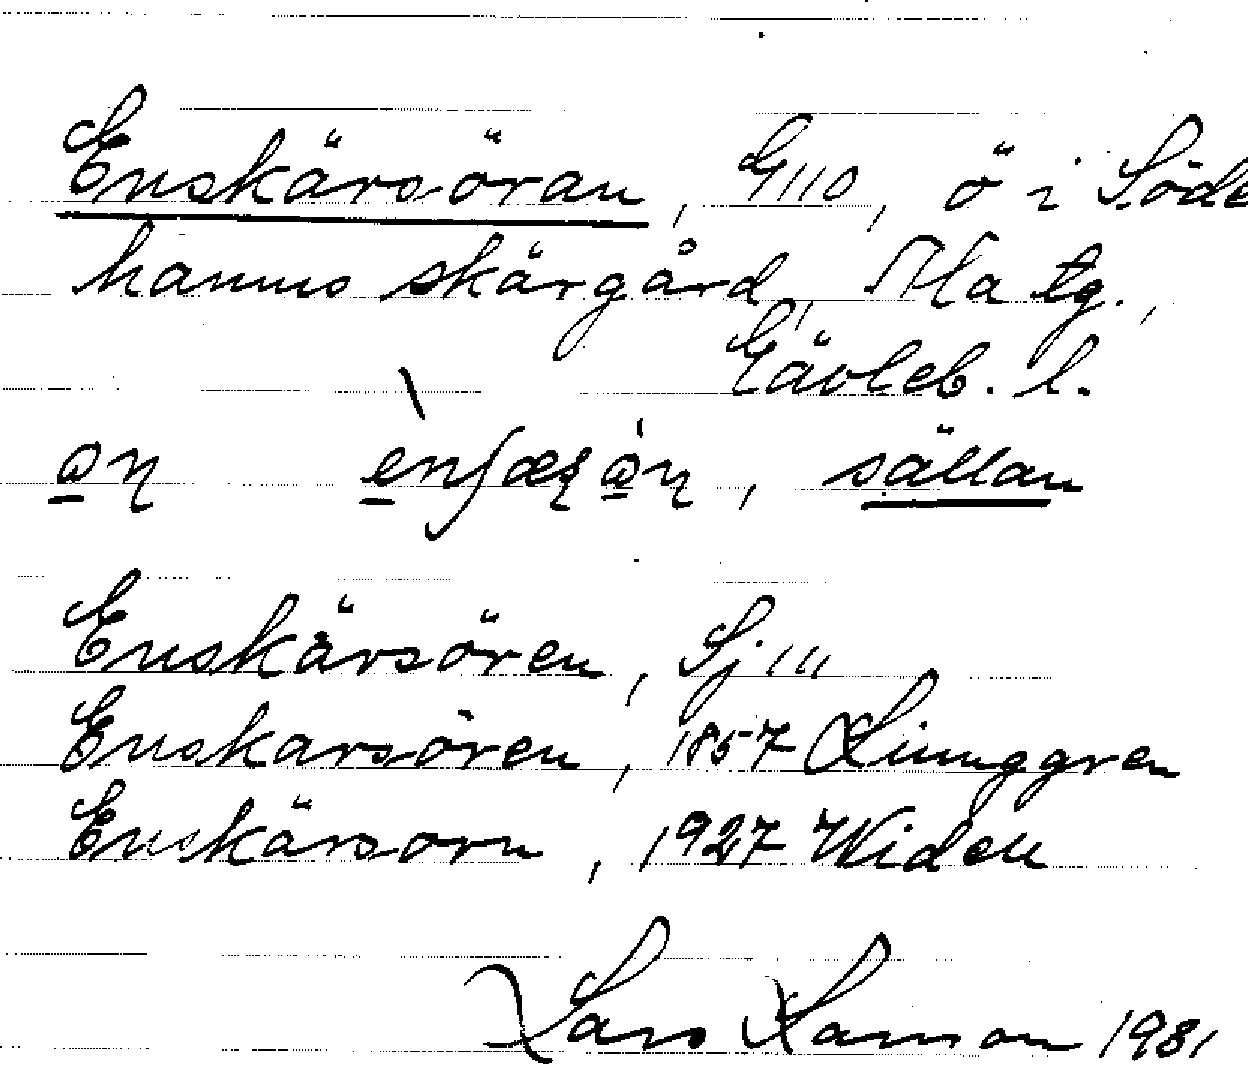 Enskärsöran, G110, ö i Söde
hamns skärgård, Ala tg.,
Gävleb. l.
sällan
Enskärsören, Sj 111
Enskarsören, 1857 Liunggren
Enskärsorn, 1927 Widell
Lars Larsson 1981